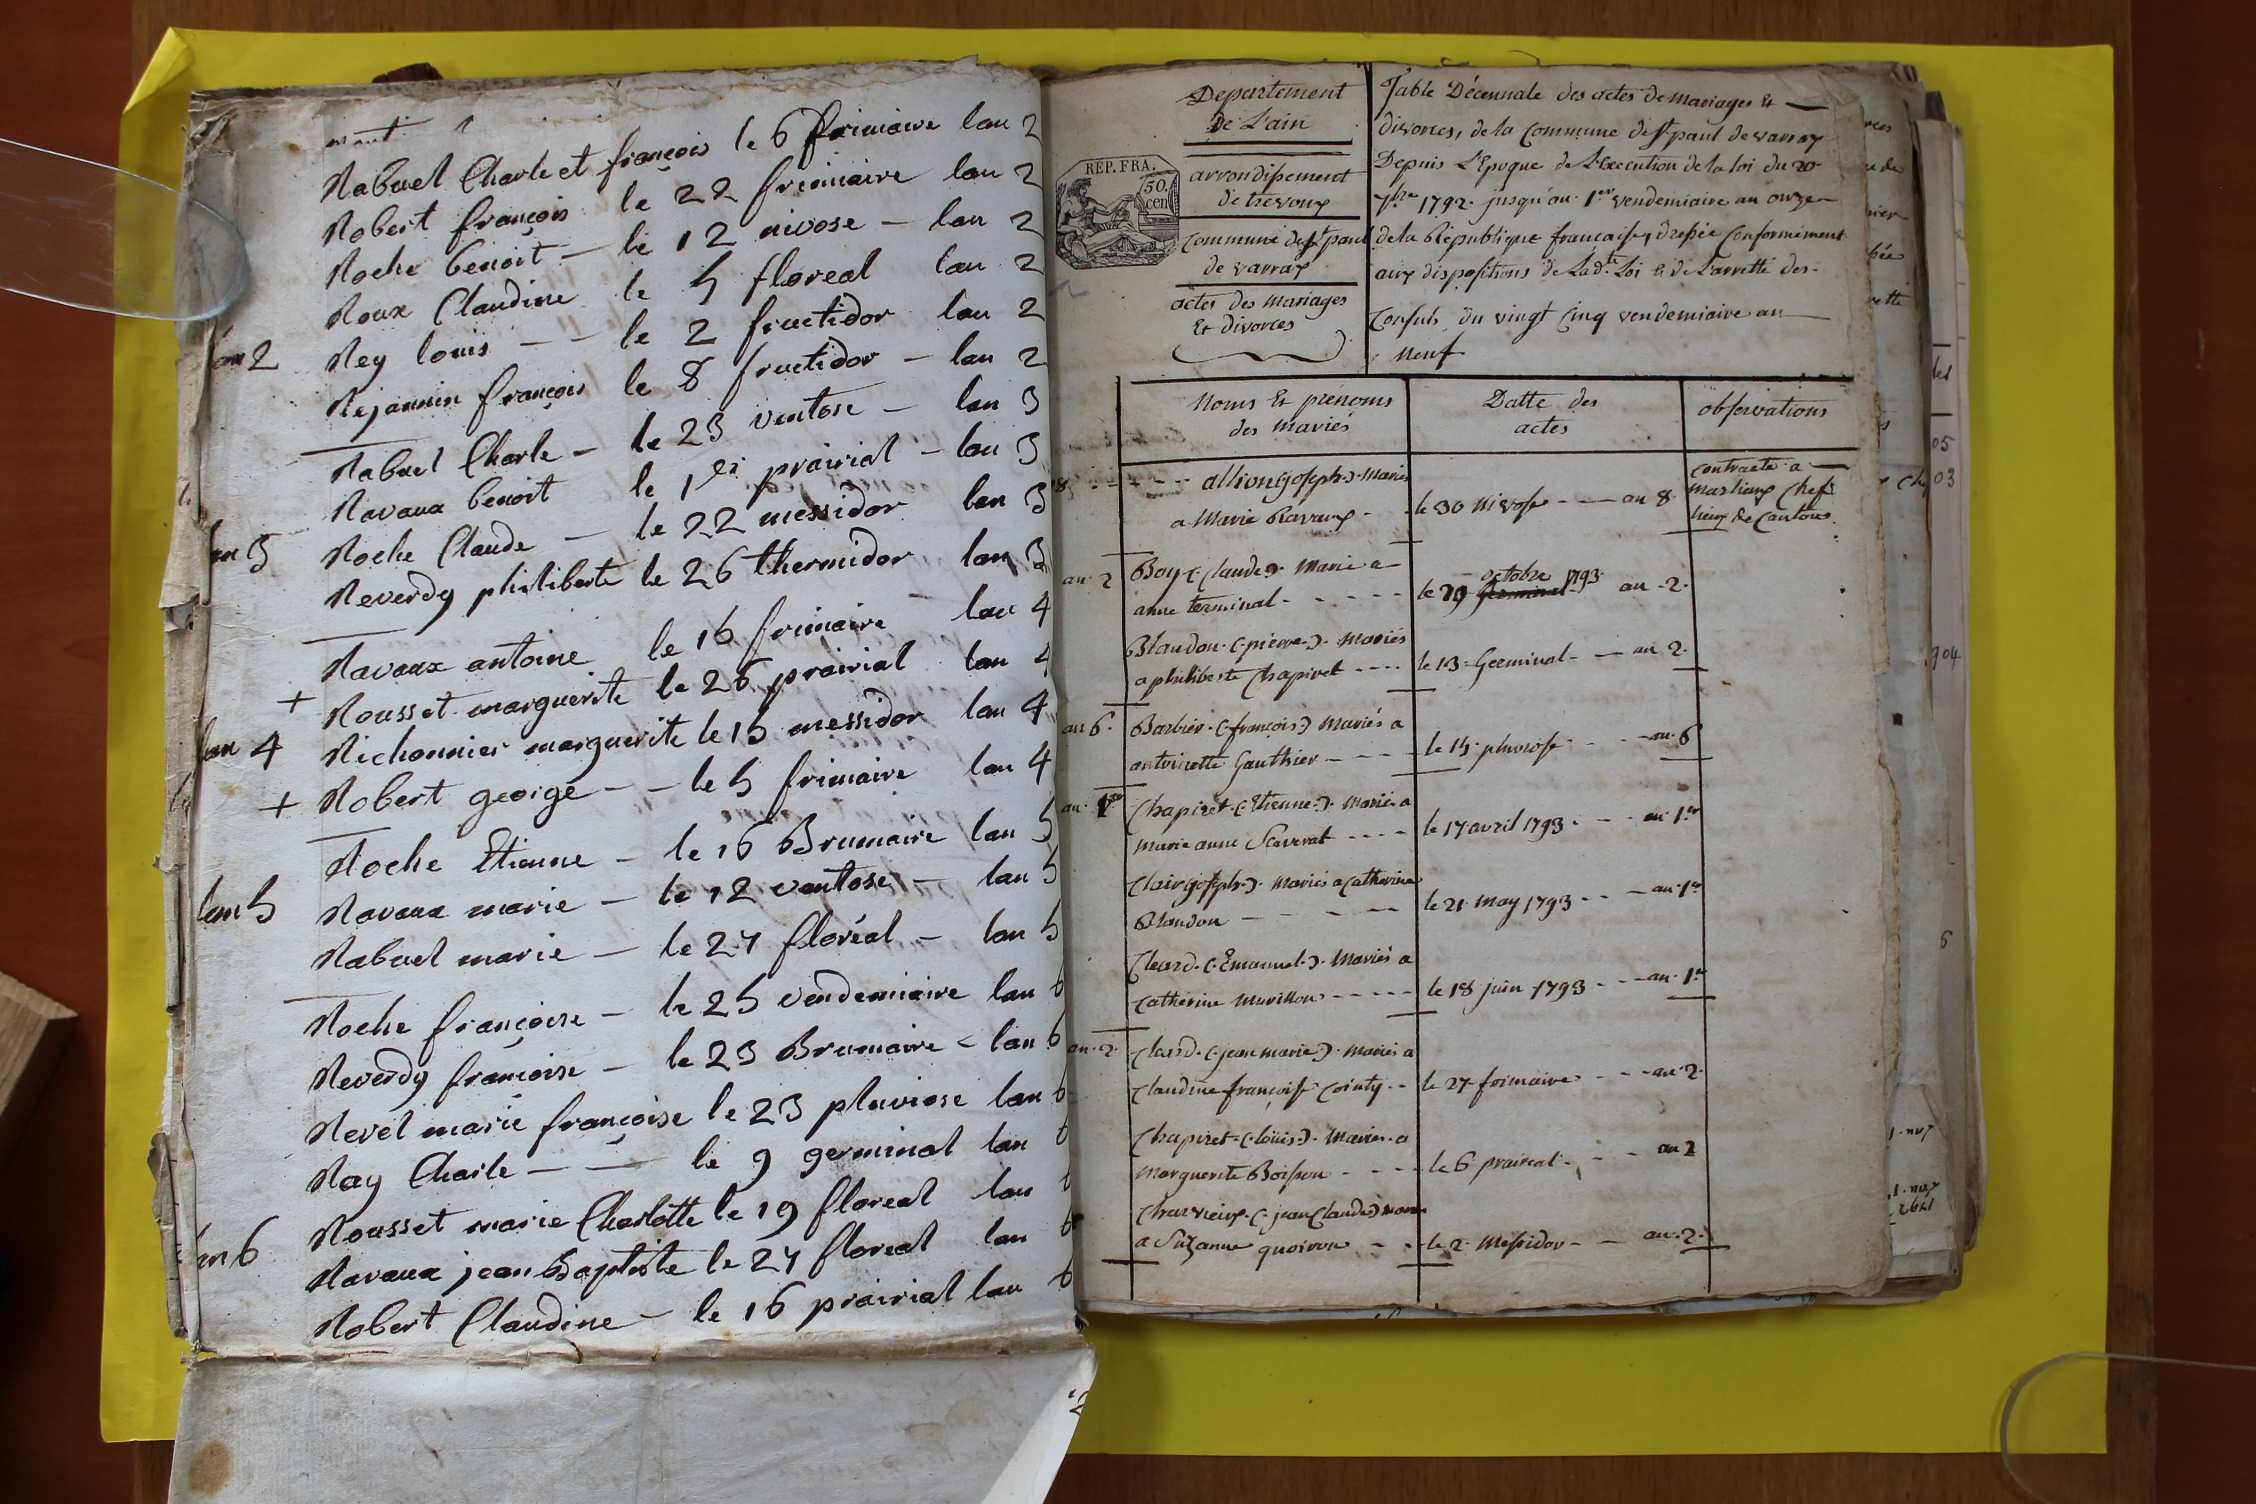 Rabuel Charle et françois le 6 frimaire lan 2
Robert françois le 22 frimaire lan 2
Roche benoit - le 12 nivose - lan 2
Roux Claudine le 5 floreal lan 2
lan 2 Rey louis - - le 2 fructidor lan 2
Rejannin françois le 8 fructidor - lan 2
Rabuel Charle - le 23 ventose - lan 3
Ravaux benoit le 1er prairial - lan 3
lan 3 Roche Claude - le 22 messidor lan 3
Reverdy philiberte le 26 thermidor lan 3
Ravaux antoine le 16 frimaire lan 4
+ Rousset marguerite le 26 prairial lan 4
lan 4 Richonnier marguerite le 15 messidor lan 4
+ Robert george - - le 5 frimaire lan 4
Roche Etienne - le 16 Brumaire lan 5
lan 5 Ravaux marie - le 12 ventose - lan 5
Rabuel marie - le 27 floréal - lan 5
Roche françoise - le 25 vendemiaire lan 6
Reverdy françoise - le 23 Brumaire - lan 6
Revel marie françoise le 23 pluviose lan 6
Ray Charle - - le 9 germinal lan 6
Rousset marie Charlotte le 19 floreal lan 6
lan 6 Ravaux jean Baptiste le 27 floreal lan 6
Robert Claudine - le 16 prairial lan 6
Departement
De L'ain
REP. FRA.
50.
cen
arrondissement
de trevoux
Commune de St paul
de varrax
actes des Mariages
Et divorces
Table Décennale des actes de Mariages Et
divorces, de la Commune de St paul de varrax
Depuis L'Epoque de L'Execution de la loi du 20
7bre 1792. jusqu'au 1er vendemiaire an onze
de la République française, dressée Conformément
aux dispositions de Ladte Loi & de L'arretté des
Consuls du vingt Cinq vendemiaire an
neuf
Noms Et prénoms
des mariés
Datte des
actes
observations
8 allion (joseph). Mariés
a Marie Ravaux - le 30 Nivose - an 8
contracté a
Marlieux Chef
lieux de Cantons
an 2 Boy (Claude). Marié a
anne terminal - - le 29 Germinal octobre 1793 an 2
Blandon (pierre). Mariés
a philiberte Chapiret - - le 13 Germinal - an 2
an 6 Barbier (françois) Mariés a
antoinette Gauthier - - le 15 pluviose - - an 6
an 1er Chapiret (Etienne). Marié a
Marie anne - - le 17 avril 1793 - - an 1er
Clair (joseph). Mariés a Catherine
Blandon - - le 21 May 1793 - - an 1er
Cleard (Emanuel). Mariés a
Catherine Murillon - - le 18 juin 1793 - - an 1er
an 2 Cleard (jean marie). Mariés a
Claudine françoise Cointy - - le 27 frimaire - - an 2
Chapiret (loüis). Mariés a
Marguerite Boisson - - le 6 prairial - - an 2
Charvieux (jean Claude)
a Suzanne quoiron - - le 2 Messidor - an 2